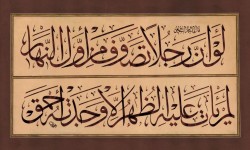 لو أن رجلا تصوف من أول النهار
لم يأت عليه الظهر إلا وجدته أحمق